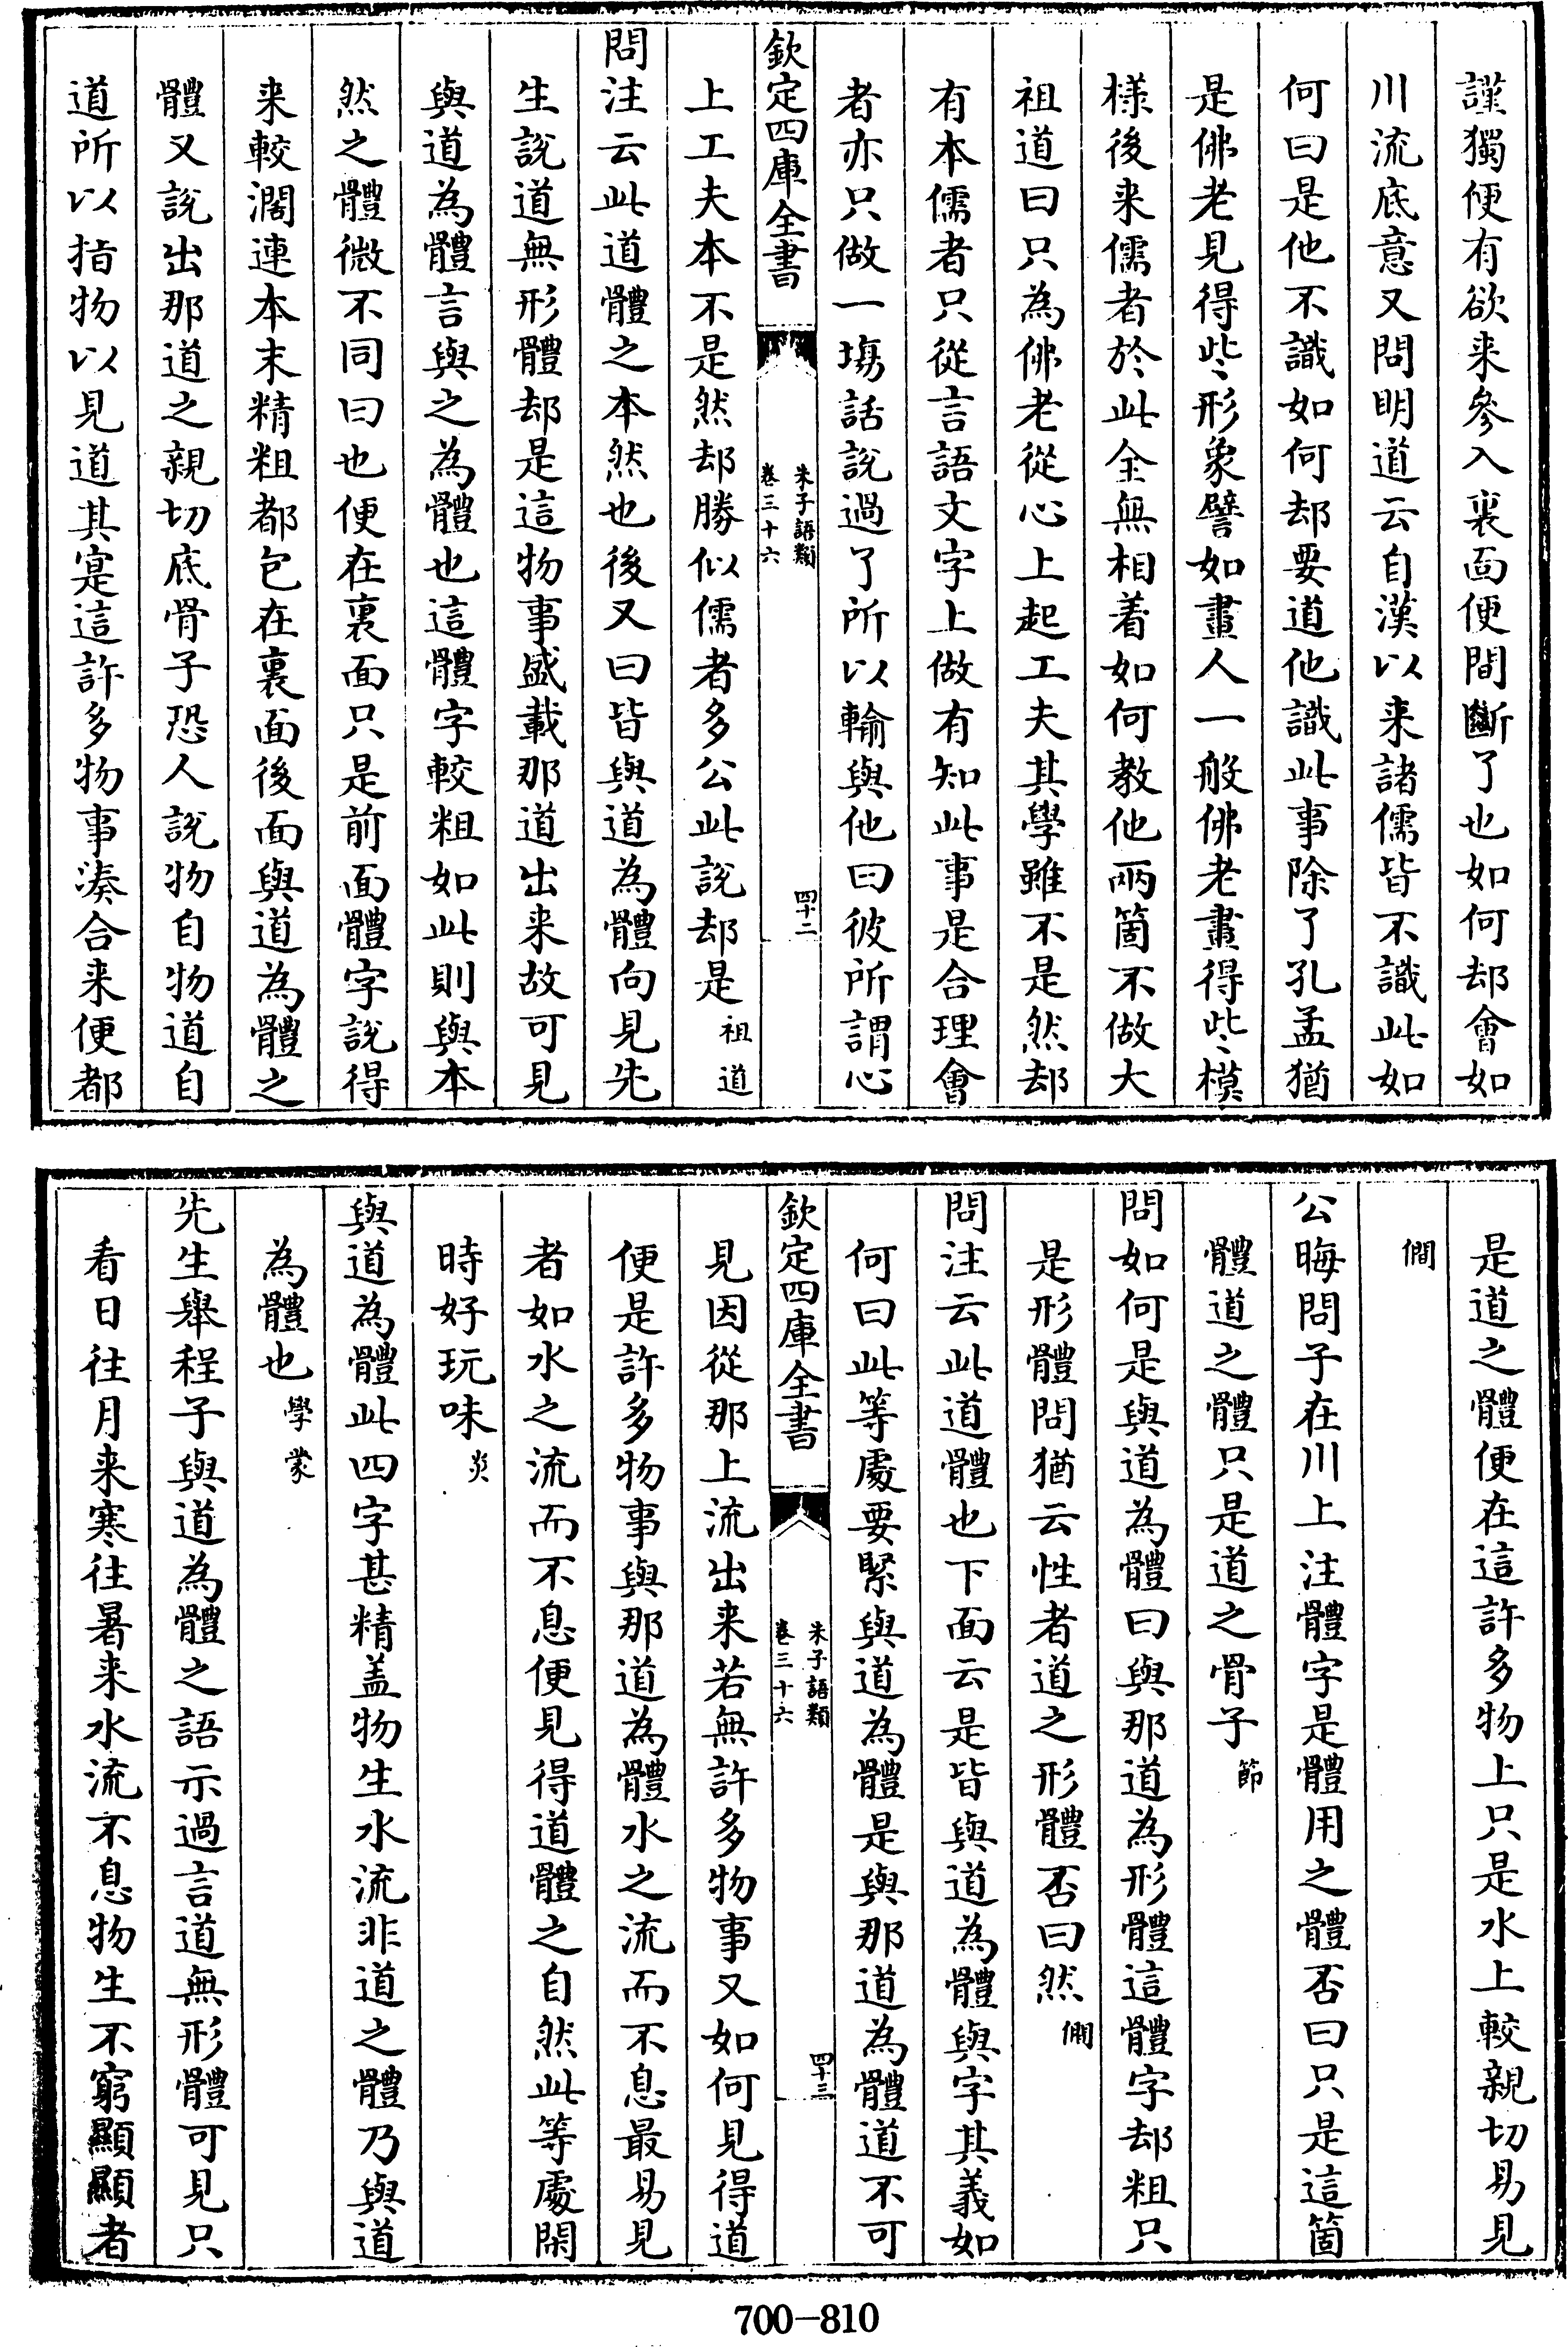 謹獨便有欲来參入裏面便間斷了也如何却會如
川流底意又問明道云自漢以来諸儒皆不識此如
何曰是他不識如何却要道他識此事除了孔孟猶
是佛老見得些形象譬如畫人一般佛老畫得些模
様後来儒者於此全無相着如何教他兩箇不做大
祖道曰只為佛老從心上起工夫其學雖不是然却
有本儒者只從言語文字上做有知此事是合理會
者亦只做一塲話說過了所以輸與他曰彼所謂心
欽定四庫全書
朱子語類
卷三十六
四十二
上工夫本不是然却勝似儒者多公此說却是祖道
問注云此道體之本然也後又曰皆與道為體向見先
生說道無形體却是這物事盛載那道出来故可見
與道為體言與之為體也這體字較粗如此則與本
然之體微不同曰也便在裏面只是前面體字說得
来較濶連本末精粗都包在裏面後面與道為體之
體又說出那道之親切底骨子恐人說物自物道自
道所以指物以見道其寔這許多物事湊合来便都
是道之體便在這許多物上只是水上較親切易見
僩
公晦問子在川上注體字是體用之體否曰只是這箇
體道之體只是道之骨子節
問如何是與道為體曰與那道為形體這體字却粗只
是形體問猶云性者道之形體否曰然僩
問注云此道體也下面云是皆與道為體與字其義如
何曰此等處要緊與道為體是與那道為體道不可
欽定四庫全書
朱子語類
卷三十六
四十三
見因從那上流出来若無許多物事又如何見得道
便是許多物事與那道為體水之流而不息最易見
者如水之流而不息便見得道體之自然此等處閑
時好玩味炎
與道為體此四字甚精盖物生水流非道之體乃與道
為體也學蒙
先生舉程子與道為體之語示過言道無形體可見只
看日往月来寒往暑来水流不息物生不窮顯顯者
700-810